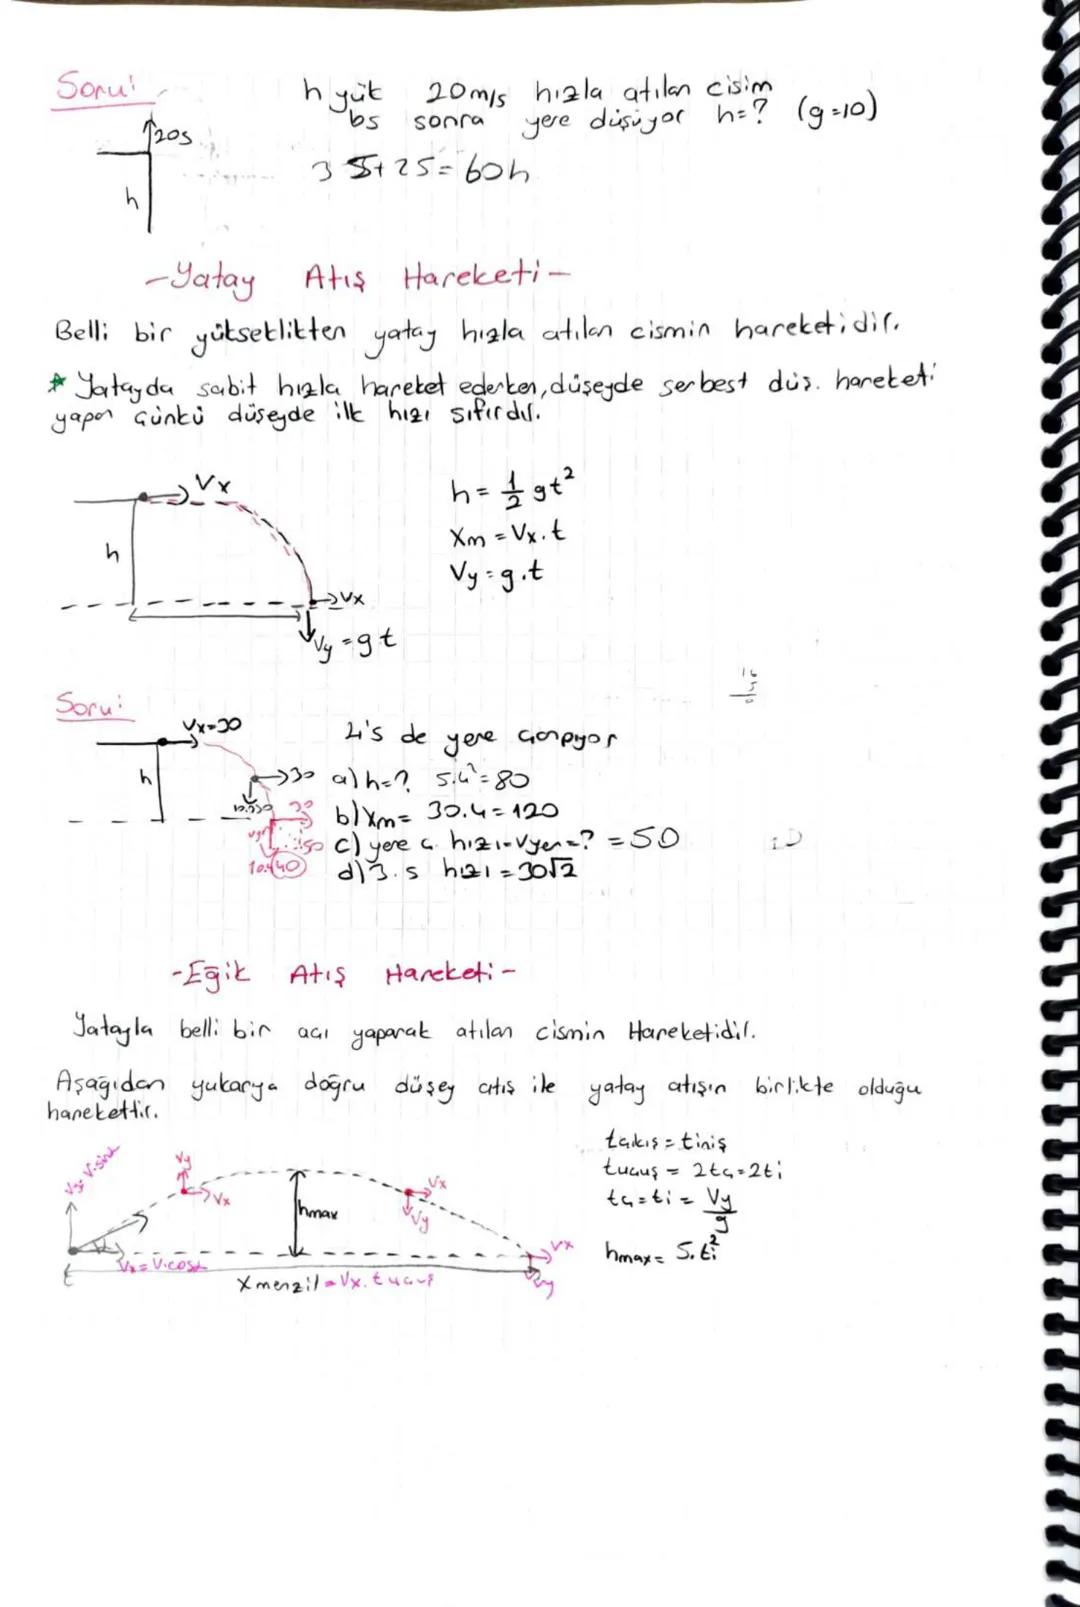 Soru:
h yük 20m/s hızla atılan cisim
6s sonra yere düşüyor h=? (g=10)
↑20s
h
35+25=60h
-Yatay Atış Hareketi-
Belli bir yükseklikten yatay hızla atılan cismin hareketidir.
* Yatayda sabit hızla hareket ederken, düşeyde serbest düş. hareketi
yapar Çünkü düşeyde ilk hızı sıfırdır.
Vx
h = 1/2 gt²
Xm = Vx.t
h
Vy = g.t
Vx
Vy = gt
Soru:
Vx=30
4's de yere çarpıyor
h
30
a) h=? 5.4²=80
30
b) Xm= 30.4=120
50
c) yere ç. hızı-Vyer=? =50
10.4 40
d) 3.s hızı = 30√2
-Eğik Atış Hareketi-
Yatayla belli bir açı yaparak atılan cismin Hareketidir.
Aşağıdan yukarya doğru düşey atış ile yatay atışın birlikte olduğu
harekettir.
tçıkış = tiniş
tuçuş = 2tç=2ti
tç=ti = Vy/g
hmax= 5.ti²
Vy=V.sinα
Vy
Vx
hmax
Vx
Vy
Vx=V.cosα
Vx
Vy
Xmenzil=Vx.tuçuş